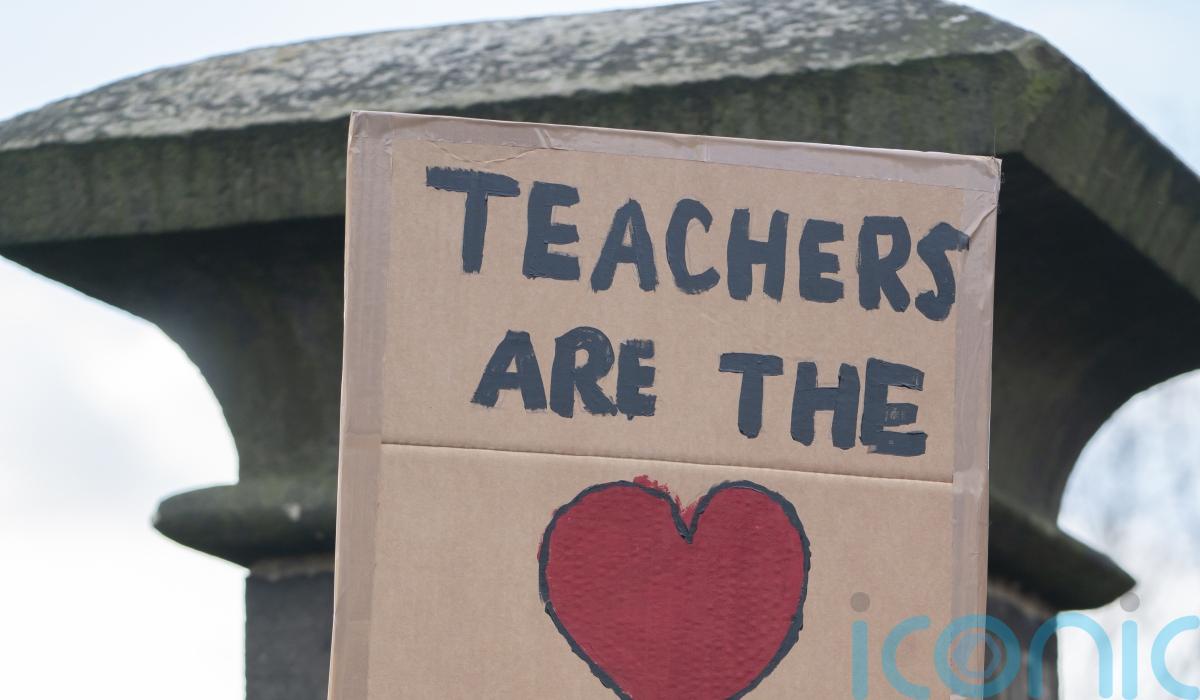 TEACHERS
ARE THE
iconic